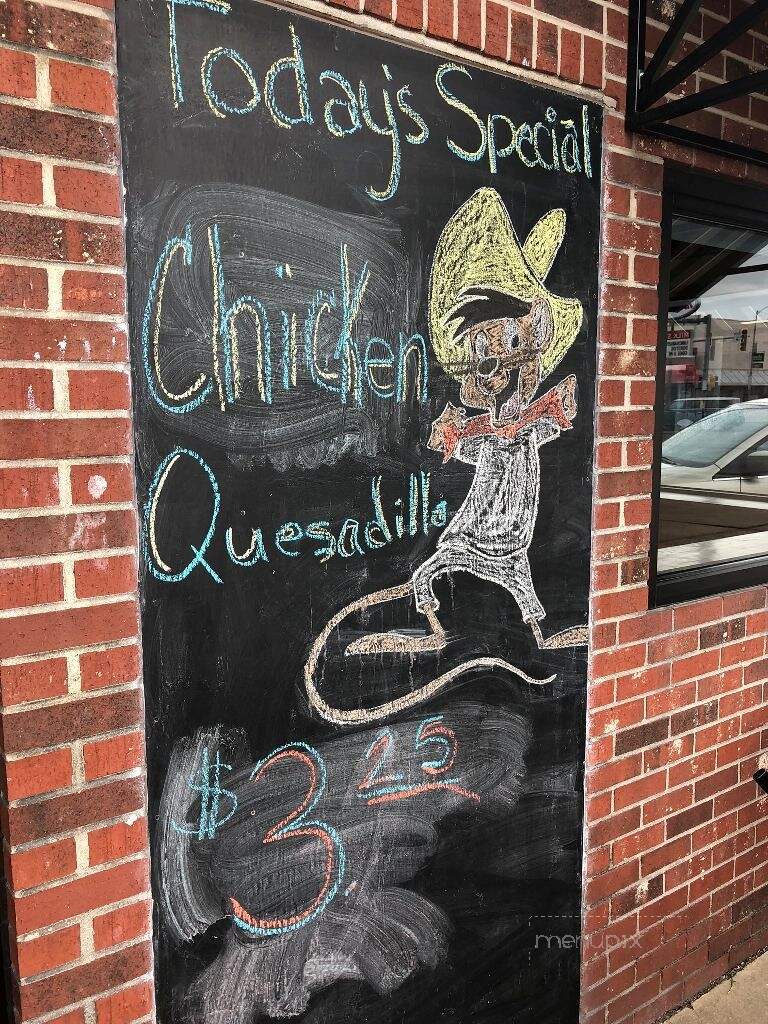 Today's Special
Chicken
Quesadilla
$3.25
menupix